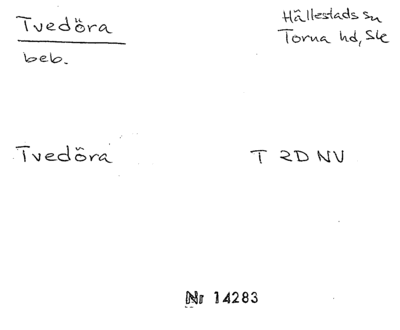 Tvedöra
Hällestads sn
beb.
Torna hd, Ske
Tvedöra T 2D NV
Nr 14283